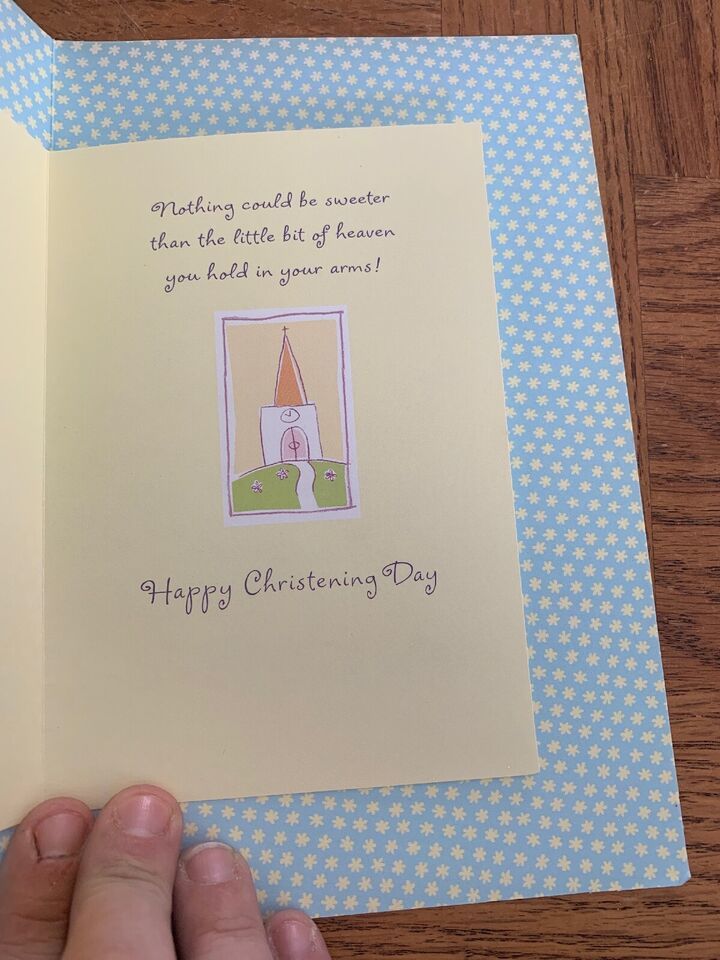 Nothing could be sweeter
than the little bit of heaven
you hold in your arms!
Happy Christening Day